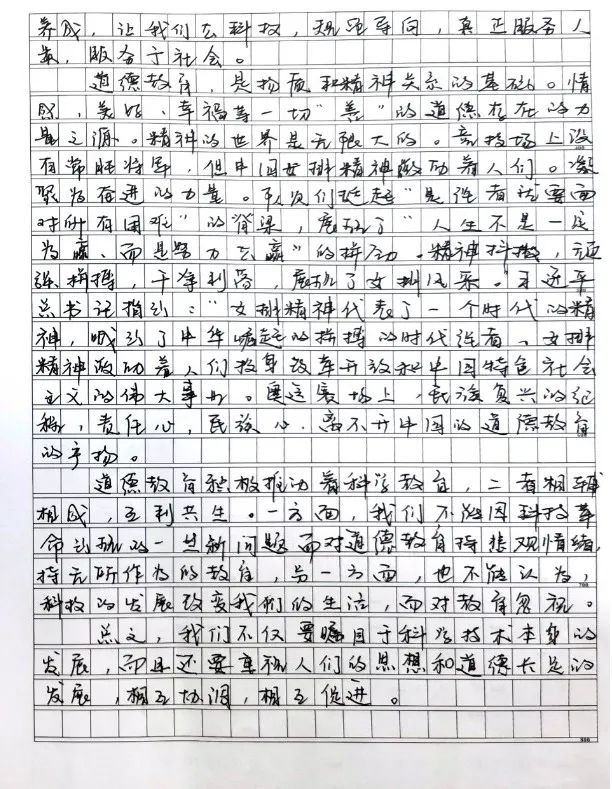 养成，让我们在科技，规范导向，真正服务人
类，服务于社会。
道德教育，是物质和精神关系的基础。情
照，美好、幸福等一切“善”的道德存在的力
量之源。精神的世界是无限大的。竞技场上没
有常胜将军，但中国女排精神激励着人们。凝
聚为奋进的力量。队员们挺起“是强者就要面
对所有困难”的脊梁，展现了“人生不是一定
为赢，而是努力去赢”的拼劲。精神抖擞，顽
强拼搏，干净利落，展现了女排风采。习近平
总书记指引：“女排精神代表了一个时代的精
神，吼引了中华崛起的拼搏的时代强音。女排
精神激励着人们投身改革开放和中国特色社会
主义的伟大事业。奥运赛场上，民族复兴的征
程，责任心，民族心，离不开中国的道德教育
的产物。
道德教育积极推动着科学教育，二者相辅
相成，互利共生。一方面，我们不能因科技革
命出现的一些新问题而对道德教育持悲观情绪，
持无所作为的教育，另一方面，也不能认为，
科技的发展改变我们的生活，而对教育忽视。
总之，我们不仅要瞩目于科学技术本身的
发展，而且还要重视人们的思想和道德长足的
发展，相互协调，相互促进。
700
800